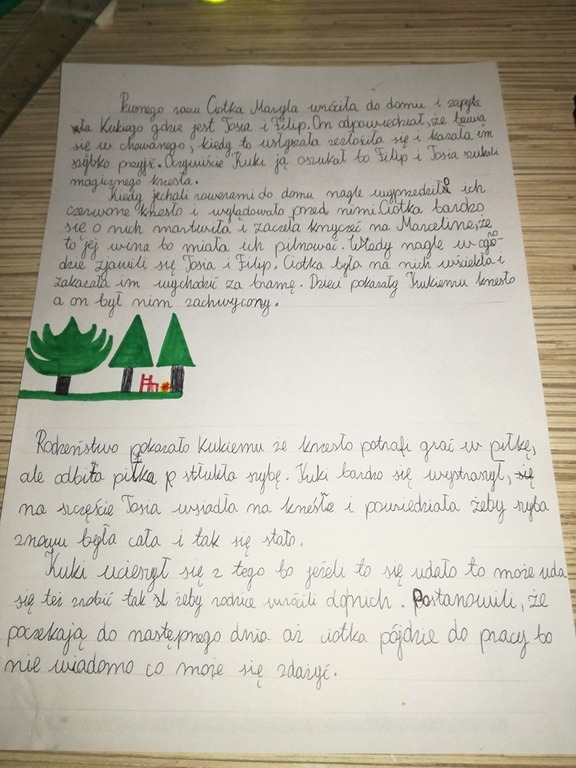 Pewnego razu Ciotka Maryla wróciła do domu i zapyta
ła Kukiego gdzie jest Tosia i Filip. On odpowiedział, że bawią
się w chowanego, kiedy to usłyszała zezłościła się i kazała im
szybko przyjść. Oczywiście Kuki ją oszukał bo Filip i Tosia szukali
magicznego krzesła.
Kiedy jechali rowerami do domu nagle wyprzedziło ich
czerwone krzesło i wylądowało przed nimi. Ciotka bardzo
się o nich martwiła i zaczęła krzyczeć na Marcelinę, że
to jej wina bo miała ich pilnować. Wtedy nagle w ogro-
dzie zjawili się Tosia i Filip. Ciotka była na nich wściekła i
zakazała im wychodzić za bramę. Dzieci pokazały Kukiemu krzesło
a on był nim zachwycony.
Rodzeństwo pokazało Kukiemu że krzesło potrafi grać w piłkę,
ale odbita piłka stłukła szybę. Kuki bardzo się wystraszył,
na szczęście Tosia wsiadła na krzesło i powiedziała żeby szyba
znowu była cała i tak się stało.
Kuki ucieszył się z tego bo jeżeli to się udało to może uda
się też zrobić tak żeby rodzice wrócili do nich. Postanowili, że
poczekają do następnego dnia aż ciotka pójdzie do pracy bo
nie wiadomo co może się zdażyć.